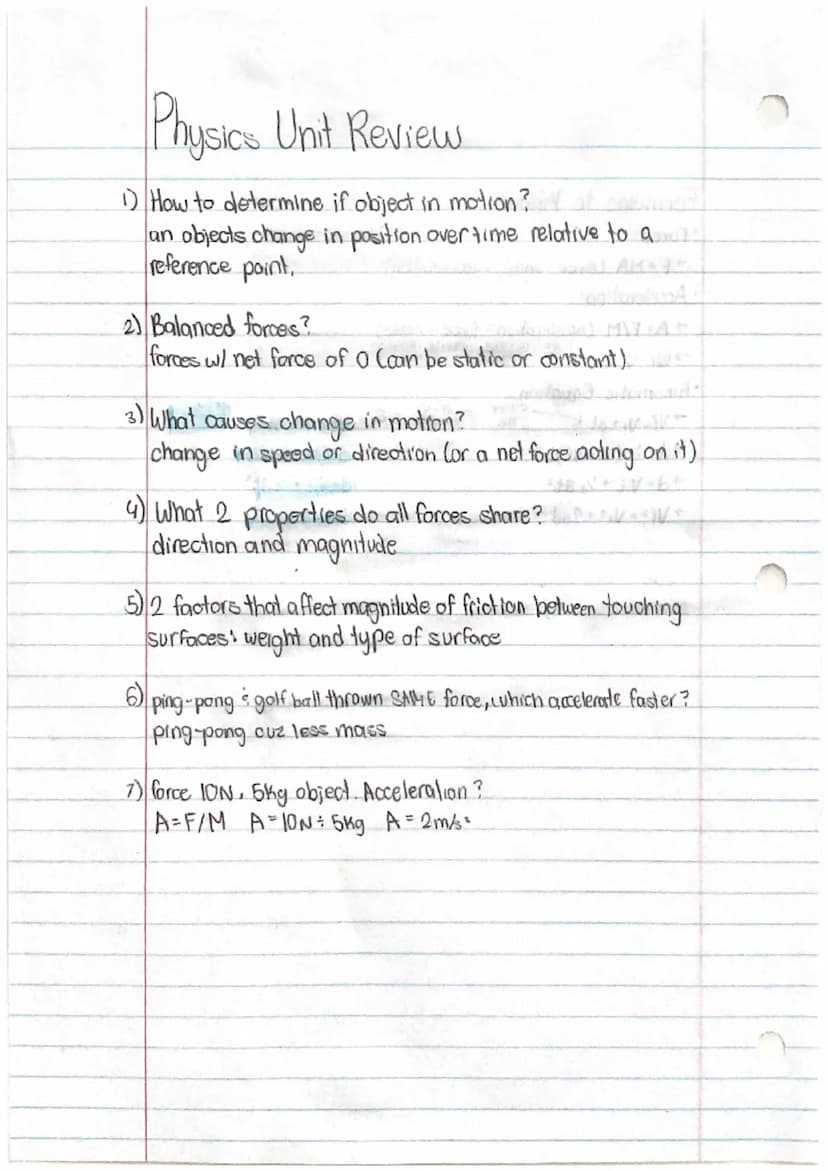 Physics Unit Review
1) How to determine if object in motion?
an objects change in position over time relative to a
reference point.
2) Balanced forces?
forces w/ net force of 0 (can be static or constant)
3) What causes change in motion?
change in speed or direction (or a net force acting on it)
4) What 2 properties do all forces share?
direction and magnitude
5) 2 factors that affect magnitude of friction between touching
surfaces: weight and type of surface
6) ping-pong & golf ball thrown SAME force, which accelerate faster?
ping-pong cuz less mass
7) force 10N, 5kg object. Acceleration?
A=F/M A=10N÷5kg A=2m/s²